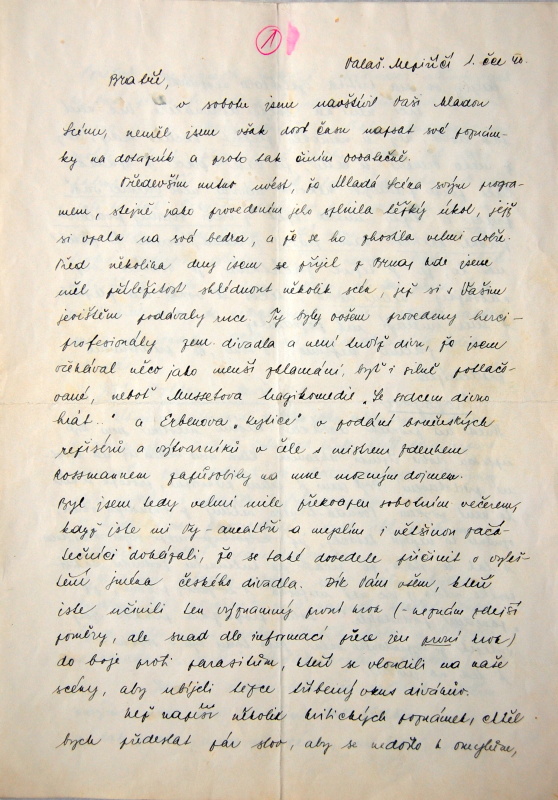 1
Valaš. Meziříčí 1. čce 40.
Bratři,
v sobotu jsem navštívil Vaši Mladou
scénu, neměl jsem však dost času napsat své poznám-
ky na dotazník a proto tak činím dodatečně.
Především nutno uvést, že Mladá scéna svým progra-
mem, stejně jako provedením jeho splnila těžký úkol, jejž
si vzala na svá bedra, a že se ho zhostila velmi dobře.
Před několika dny jsem se přijel z Brna, kde jsem
měl příležitost shlédnout několik scén, jež si s Vaším
jevištěm podávaly ruce. Ty byly ovšem provedeny herci-
profesionály zem. divadla a není tudíž divu, že jsem
očekával něco jako menší zklamání, byť i silně potlačo-
vané, neboť Mussetova tragikomedie „Se srdcem divno
hrát.." a Erbenova „Kytice" v podání brněnských
režisérů a výtvarníků v čele s mistrem Zdenkem
Rossmannem zapůsobily na mne mocným dojmem.
Byl jsem tedy velmi mile překvapen sobotním večerem,
když jste mi Vy - amatéři a myslím i většinou začá-
tečníci dokázali, že se také dovedete přičinit o vyleš-
tění jména českého divadla. Dík Vám všem, kteří
jste učinili ten významný první krok (- neznám zdejší
poměry, ale snad dle informací přece jen první krok)
do boje proti parasitům, kteří se vloudili na naše
scény, aby ubíjeli těžce tříbený vkus diváků.
Než napíši několik kritických poznámek, chtěl
bych předeslat pár slov, aby se nedošlo k omylům,